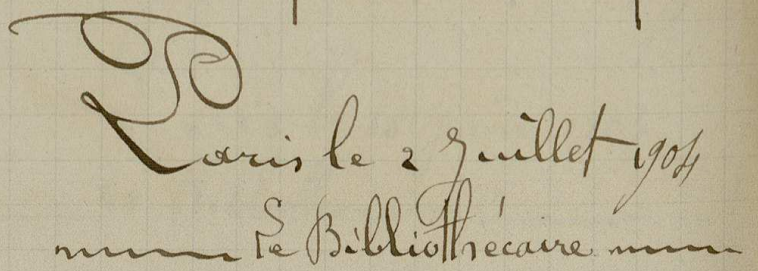 Paris le 2 Juillet 1904
Le Bibliothécaire